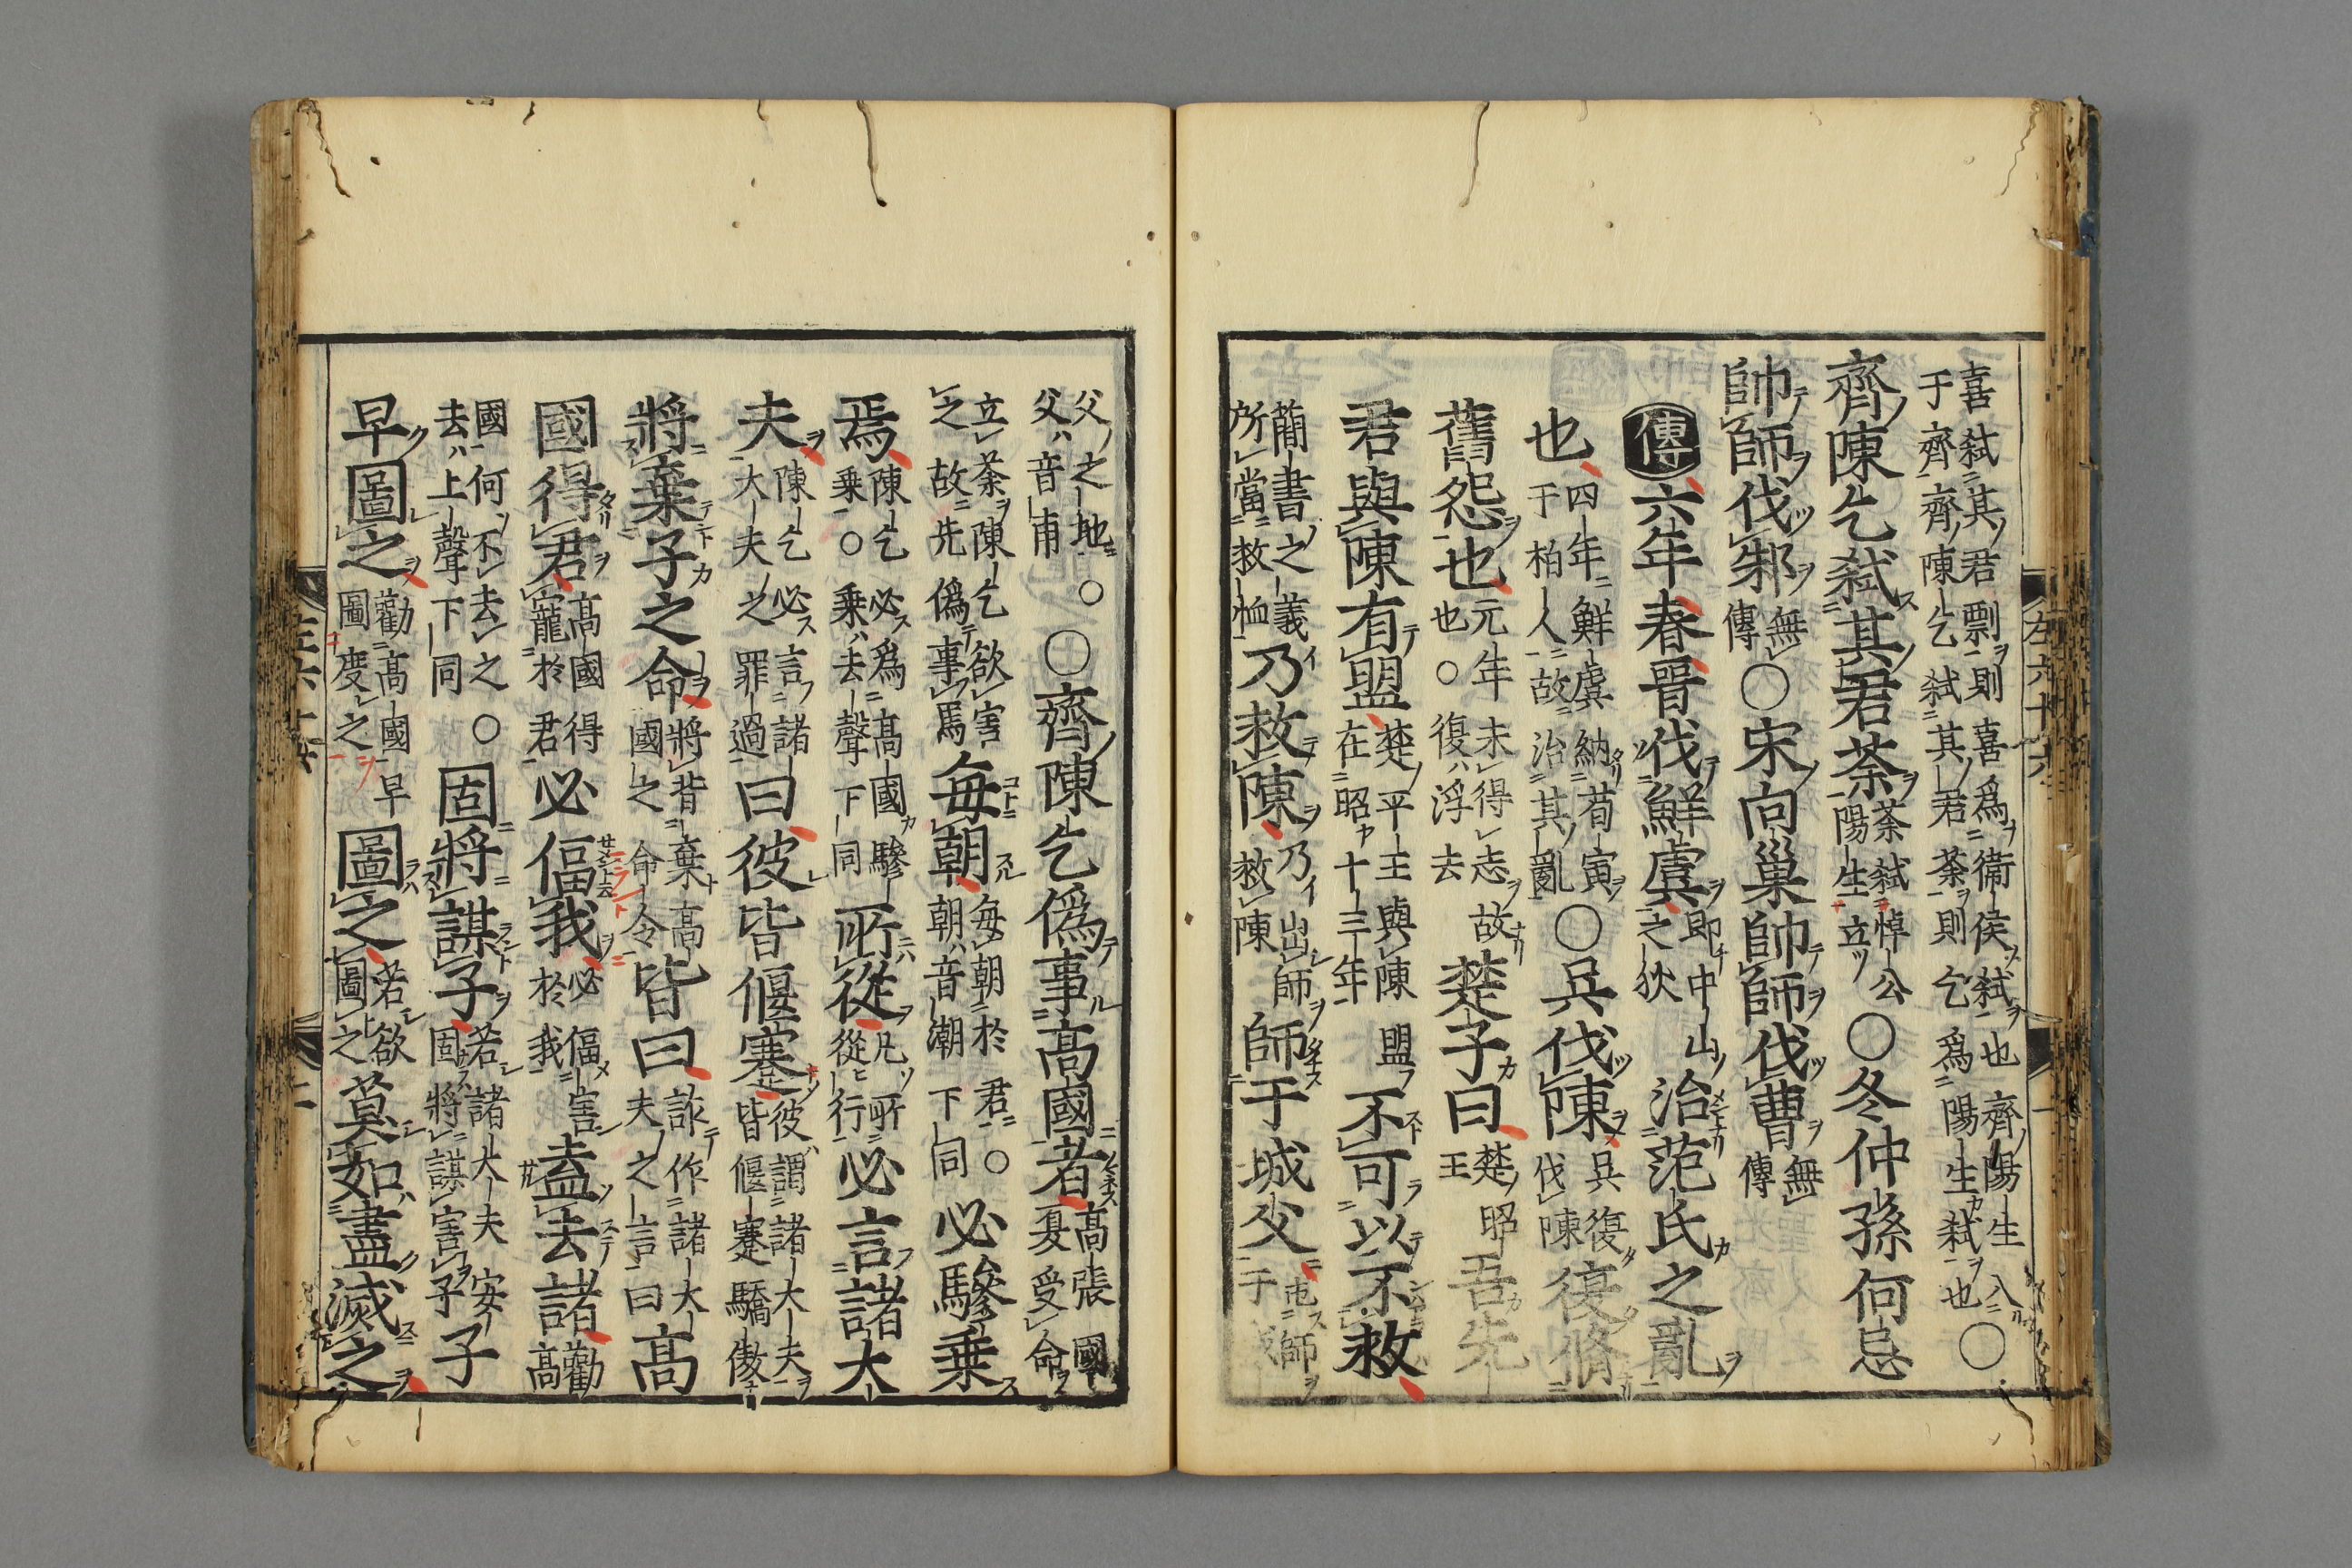 喜弑其君剽則喜爲衛侯弑也齊陽生入
于齊齊陳乞弑其君荼則乞爲陽生弑也○
齊陳乞弑其君荼荼弑悼公陽生立○冬仲孫何忌
帥師伐邾無傳○宋向巢帥師伐曹無傳
傳六年春晉伐鮮虞即中山之狄治范氏之亂
也四年鮮虞納荀寅于柏人故治其亂○吳伐陳吳復伐陳復脩
舊怨也元年未得志故也○復浮去楚子曰楚昭王吾先
君與陳有盟楚平王與陳盟在昭十三年不可以不救
蘭書之義所當救恤乃救陳乃出師救陳師于城父屯師于
父之地○父音甫○齊陳乞僞事高國者高張國夏受命
立荼陳乞欲害之故先僞事焉每朝每朝於君○朝音潮下同必驂乗
焉陳乞必爲高國驂乗○乗去聲下同所從凡所從行必言諸大
夫陳乞必言諸大夫之罪過曰彼皆偃蹇彼謂諸大夫皆偃蹇驕傲
將棄子之命將背棄高國之命令皆曰詐作諸大夫之言曰高
國得君高國得寵於君必偪我必偪害於我盍去諸勸高
國何不去之○去上聲下同固將謀子若諸大夫安固將謀害子子
早圖之勸高國早圖度之圖之若欲圖之莫如盡滅之